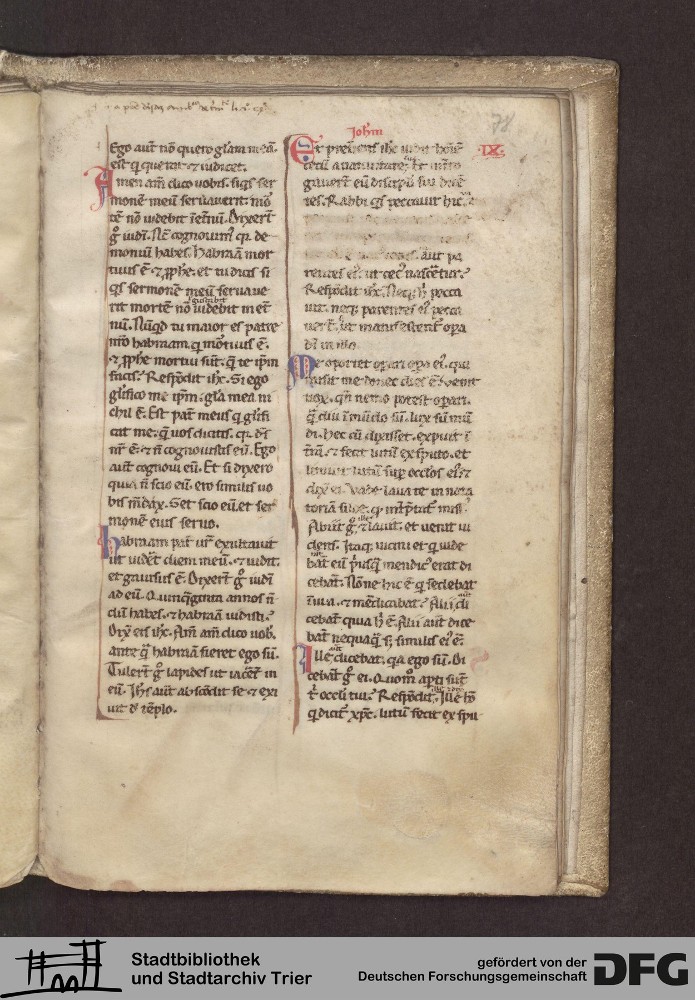 78
Joh'm
Ego aut̄ nō quero gl'am meā.
est q̇ querat ⁊ iudicet.
Amen am̄ dico vobis. siq̇s ser
monē meū seruauerit: mor
tē nō uidebit ī et̄nū. Dixer̄t
g̊ iudī. Nc̄ cognouimꝰ qꝛ de
moniū habes. Habraam mor
tuus ē ⁊ ꝓphe. et tu dicis si
q̇s sermonē meū seruaue
gustabit
rit mortē nō uidebit ī et̄
nū. Nūqd tu maior es patre
nr̄o habraam. q̇ mortuus ē.
⁊ ꝓphe mortui sūt. q̄ te ip̄m
facis. Respōdit ih̄c. Si ego
glīfico me ip̄m: gl'a mea ni
chil ē. Est pat̄ meus q̇ glīfi
cat me. q̄ uos dicitis. qꝛ d's
nr̄ ē. ⁊ n̄ cognouistis eū. Ego
aut̄ cognoui eū. Et si dixero
quia n̄ scio eū. ero similis uo
bis m̄dax. Set scio eū. et ser
monē eius seruo.
Habraam pat̄ ur̄ exultauit
ut uidēt diem meū. ⁊ uidit.
et gauisus ē. Dixer̄t g̊ iudī
ad eū. Quinq̄ginta annos n̄
dū habes. ⁊ habraā uidisti.
Dix̄ eis ih̄c. Am̄ am̄ dico uob̄.
ante q̄ habraā fieret ego sū.
Tuler̄t g̊ lapides ut iacēt in
eū. Ih̄s aut̄ abscōdit se ⁊ exi
uit de tēplo.
IX.
Et pret̄iens ih̄c uidit hoīem
cecū a natiuitate. Et int̄ro
gauer̄t eū discip̄li sui dicē
tes. Rabbi q̇s peccauit hic.
aut pa
rentes eiꝰ. ut cecꝰ nascēt̄ur.
Respōdit ih̄c. Neq; h̄ pecca
uit. neq; parentes eiꝰ pecca
uer̄t. ut manifestent̄ op̄a
dī in illo.
Me oportet op̄ari op̄a eiꝰ. qui
misit me donec dies ē. uenit
nox. qn̄ nemo potest op̄ari.
q̄ diu ī mūdo sū. lux sū mū
di. hec cū dixisset. expuit ī
t̄ra. ⁊ fecit lutū ex sputo. et
liniuit lutū sup̄ oc̄los eiꝰ ⁊
dix̄ ei. Vade laua te in nata
toria siloe. q̇ int̄p̄tat̄ missꝰ.
Abiit g̊ ⁊ lauit. et uenit ui
dens. Itaq; uicini et q̇ uide
bāt eū priusq̄ mendicꝰ erat di
cebāt. Nōne hic ē q̇ sedebat
⁊ mēdicabat. Alii di
cebāt quia h̄ ē. Alii aut dice
bāt nequaq̄ s; similis eiꝰ ē.
Ille dicebat. qa ego sū. Di
cebāt g̊ ei. Quomo apti sūt
t̄ oculi tui. Respōdit. Ille hō
q̇ dicit̄ xp̄c. lutū fecit ex spu
Stadtbibliothek
und Stadtarchiv Trier
gefördert von der
Deutschen Forschungsgemeinschaft
DFG